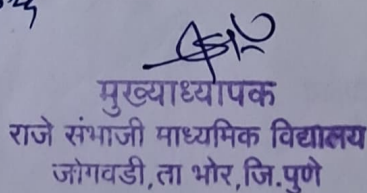 मुख्याध्यापक
राजे संभाजी माध्यमिक विद्यालय
जोगवडी, ता भोर, जि.पुणे